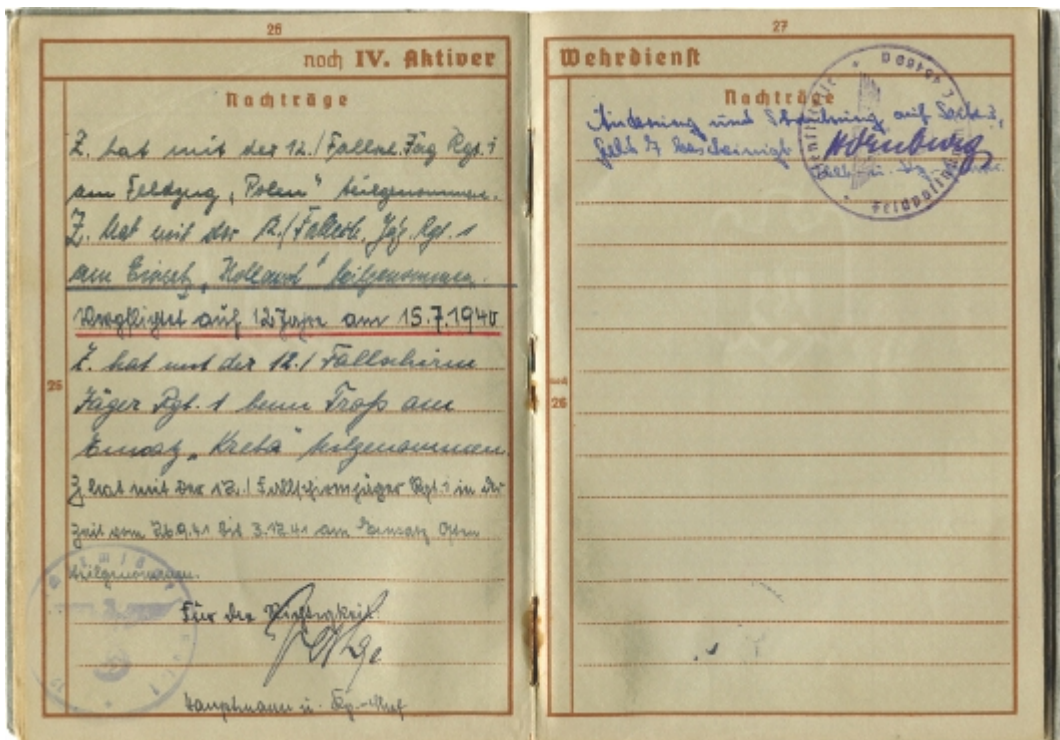 26
noch IV. Aktiver
Nachträge
Z. hat mit der 12./Fallsch. Jäg Rgt. 1
am Feldzug „Polen" teilgenommen.
Z. hat mit der 12./Fallsch. Jäg. Rgt. 1
am Einsatz „Holland" teilgenommen.
Verpflichtet auf 12 Jahre am 15.7.1940
Z. hat mit der 12./ Fallschirm
Jäger Rgt. 1 beim Troß am
Einsatz „Kreta" teilgenommen.
Z hat mit der 12./ Fallschirmjäger Rgt. 1 in der
Zeit vom 26.9.41 bis 3.12.41 am Einsatz Osten
teilgenommen.
Für die Richtigkeit:
Hauptmann u. Kp.-Chef
26
27
Wehrdienst
Nachträge
Änderung und Streichung auf Seite 3,
bescheinigt
Feldpost
noch
26